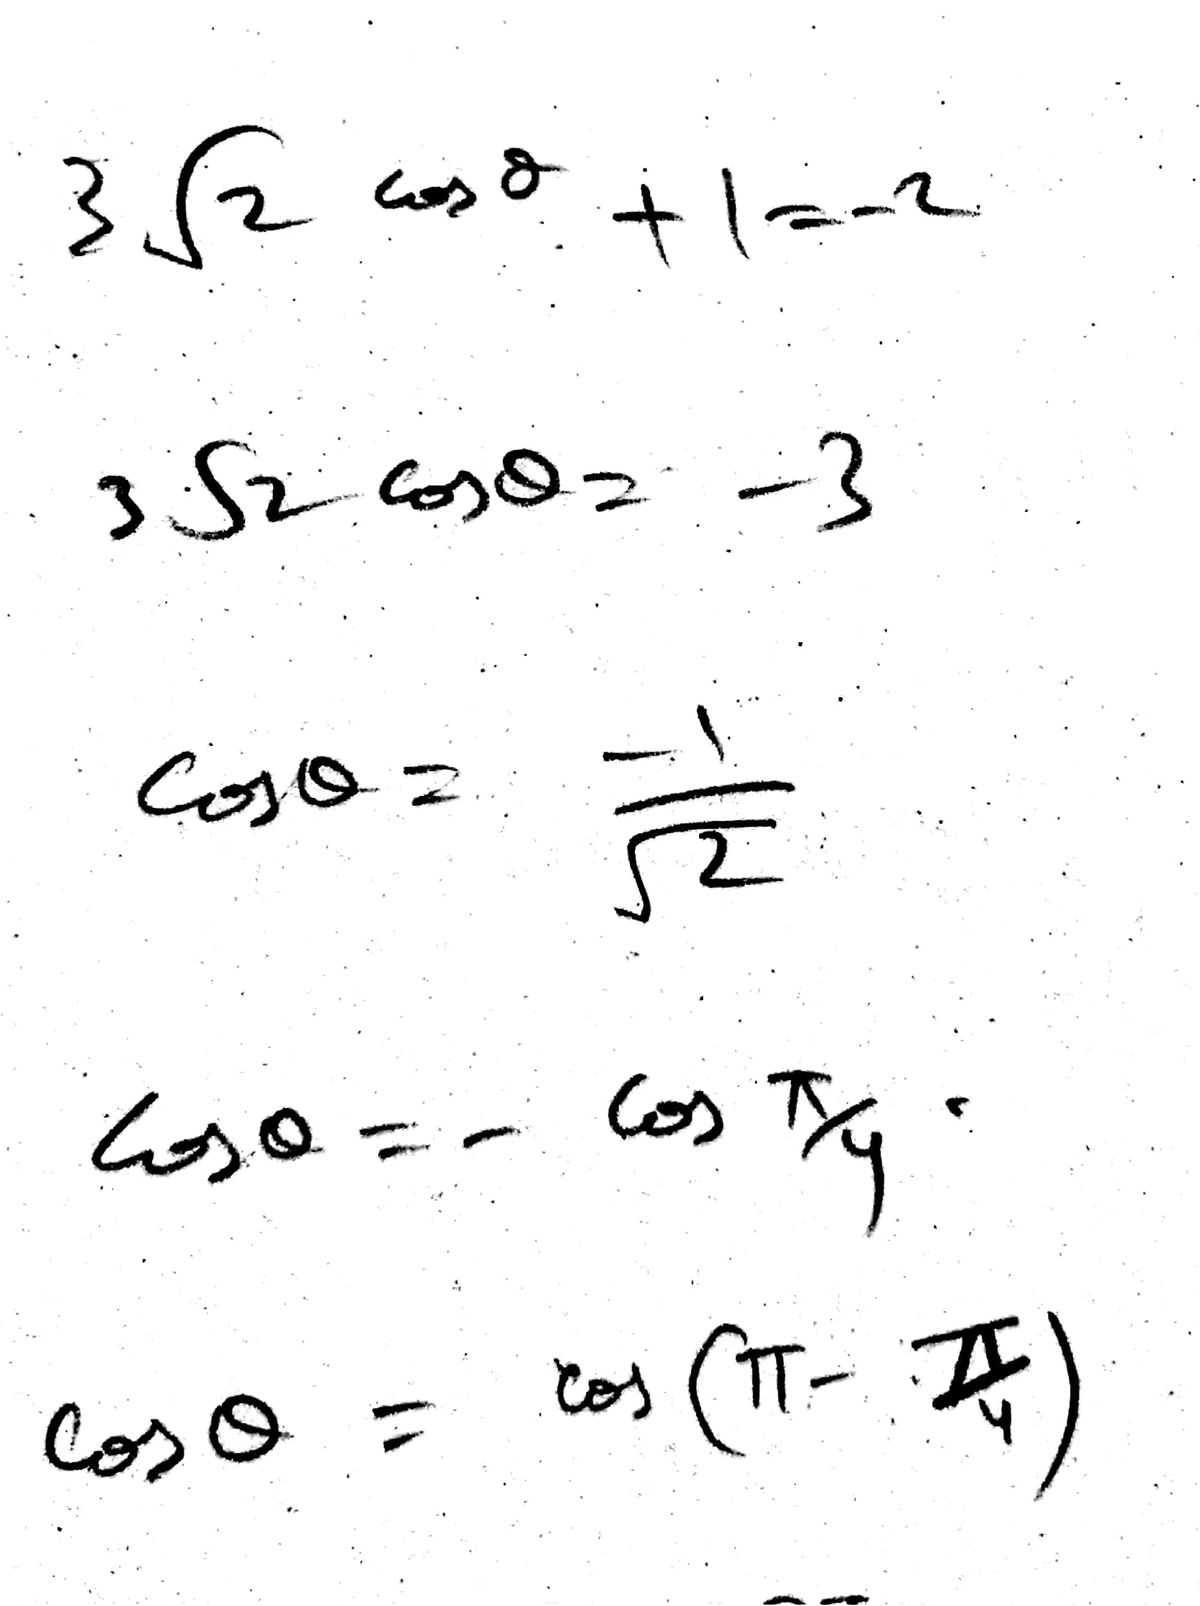 3√2 cos θ + 1 = -2
3√2 cos θ = -3
cos θ = -1/√2
cos θ = - cos π/4 .
cos θ = cos (π - π/4)